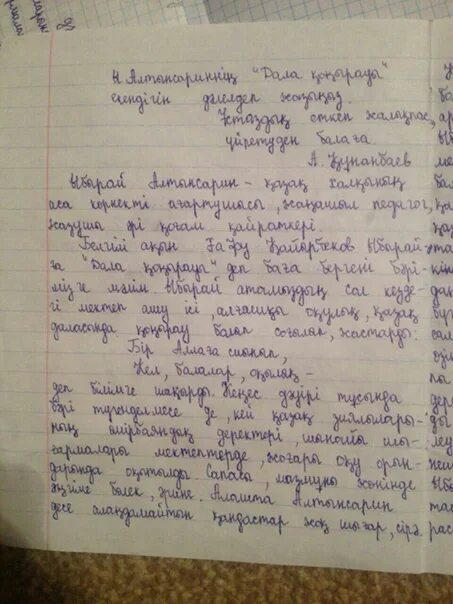 Ы Алтынсариннің "Дала қоңырауы"
екендігін дәлелдеп жазыңыз.
Ұстаздық еткен жалықпас,
үйретуден балаға.
А. Құнанбаев
Ыбырай Алтынсарин - қазақ халқының
аса көрнекті ағартушысы, жаңашыл педагог,
жазушы әрі қоғам қайраткері.
Белгілі ақын Ғафу Қайырбеков Ыбырай-
ға "Дала қоңырауы" деп баға бергені бәрі-
мізге мәлім. Ыбырай атамыздың сол кезде-
гі мектеп ашу ісі, алғашқы оқулық, қазақ
даласында қоңырау болып соғылып, жастарды:
Бір Аллаға сыйынып,
Кел, балалар, оқылық -
деп білімге шақырды. Кеңес дәуірі тұсында
бәрі түгенделмесе де, кей қазақ зиялылары-
ның өмірбаяндық деректері, шынайы шы-
ғармалары мектептерде, жоғары оқу орын-
дарында оқытылды. Сапасы, мазмұны жөнінде
әңгіме бөлек, әрине. Алашта Алтынсарин
десе алаңдамайтын қандастар жоқ шығар, сірә.